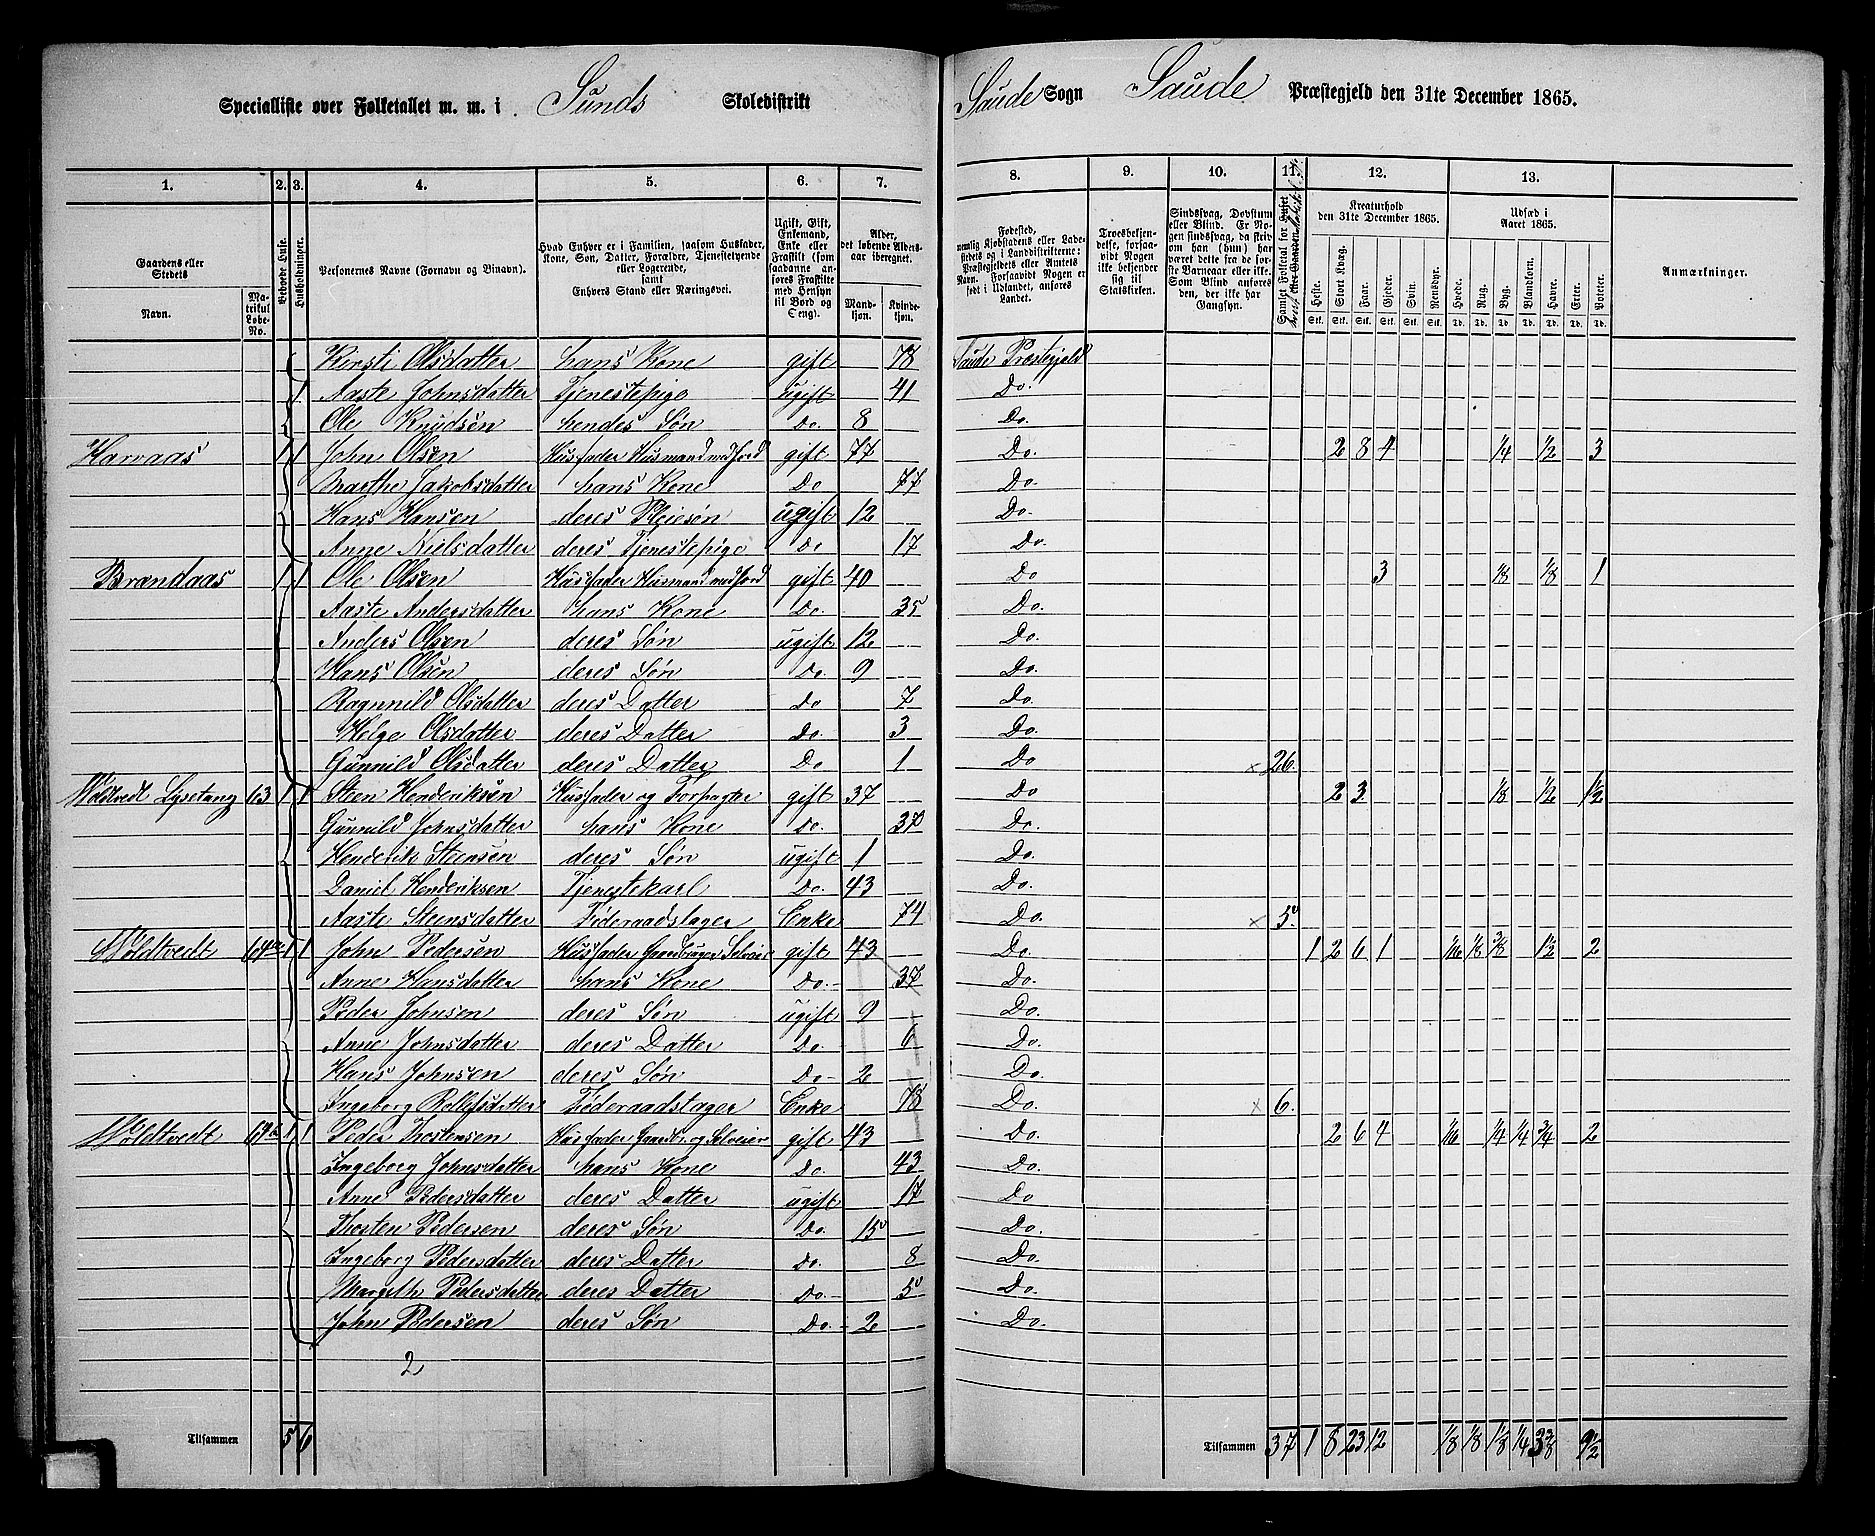 Specialliste over Folketallet m. m. i Sunds Skoledistrikt
Saude Sogn Saude Præstegjeld den 31te December 1865.
1. 2. 3. 4. 5. 6. 7. 8. 9. 10. 11. 12. 13.
Gaardens eller Stedets
Navn. Matrikul Løbe-No.
Beboede Huse.
Husholdninger.
Personernes Navne (Fornavn og Binavn).
Hvad Enhver er i Familien, saasom Husfader, Kone, Søn, Datter, Forældre, Tjenestetyende eller Logerende, samt Enhvers Stand eller Næringsvei.
Ugift, Gift, Enkemand, Enke eller Fraskilt (som saadanne anføres Fraskilte med Hensyn til Bord og Seng).
Alder, det løbende Aldersaar iberegnet.
Mandkjøn. Kvindekjøn.
Fødested, nemlig Kjøbstadens eller Ladestedets og i Landdistrikterne: Præstegjeldets eller Amtets Navn. Forsaavidt Nogen er født i Udlandet, anføres Landet.
Troesbekjendelse, forsaavidt Nogen ikke bekjender sig til Statskirken.
Sindssvag, Døvstum eller Blind. Er Nogen sindssvag, da skrives, da han (hun) har været dette fra de første Barneaar eller ikke. Som Blind anføres den, der ikke har Gangsyn.
Kreaturhold den 31te December 1865.
Heste. Stort Kvæg. Faar. Gjeder. Svin. Rensdyr.
Udsæd i Aaret 1865.
Hvede. Rug. Byg. Blandkorn. Havre. Erter. Poteter.
Anmærkninger.
Kersti Olsdatter hans Kone gift 78 Saude Præstegjeld
1 Aaste Johnsdatter Tjenestepige ugift 41 Do.
Ole Knudsen hendes Søn Do. 8 Do.
Harvaas 1 1 John Olsen Husfader Husmand med Jord gift 77 Do. 2 8 4 1/4 1/2 3
Marthe Jakobsdatter hans Kone Do 77 Do.
Hans Hansen deres Pleiesøn ugift 12 Do.
Anne Nielsdatter deres Tjenestepige Do 17 Do.
Brandaas 1 1 Ole Olsen Husfader Husmand med Jord gift 40 Do 3 1/8 1/8 1
Aaste Andersdatter hans Kone Do. 35 Do.
Anders Olsen deres Søn ugift 12 Do.
Hans Olsen deres Søn Do. 9 Do.
Ragnnild Olsdatter deres Datter Do 7 Do.
Helge Olsdatter deres Datter Do. 3 Do.
Gunnild Olsdatter deres Datter Do 1 Do × 26.
Woldtvedt Lysetang 63 1 1 Steen Henderiksen Husfader og Forpagter gift 37 Do 2 3 1/8 1/2 1 1/2
Gunnild Johnsdatter hans Kone Do. 37 Do.
Henderik Steensen deres Søn ugift 1 Do.
Daniel Henderiksen Tjenestekarl Do. 43 Do.
Aaste Steensdatter Føderaadstager Enke 74 Do. × 5.
Woldtvedt 64a 1 1 John Pedersen Husfader Gaardbruger Selveier gift 43 Do. 1 2 6 1 1/16 1/8 3/8 1 1/2 2
Anne Hansdatter hans Kone Do. 37 Do.
Peder Johnsen deres Søn ugift 9 Do.
Anne Johnsdatter deres Datter Do. 6 Do.
Hans Johnsen deres Søn Do 2 Do.
Ingeborg Rollefsdatter Føderaadstager Enke 78 Do. × 6.
Woldtvedt 1 1 Peder Thostensen Husfader Gaardbr. og Selveier gift 43 Do. 2 6 4 1/16 1/4 1/4 3/4 2
Ingeborg Johnsdatter hans Kone Do. 43 Do.
Anne Pedersdatter deres Datter ugift 17 Do
Thosten Pedersen deres Søn Do. 15 Do.
Ingeborg Pedersdatter deres Datter Do. 8 Do.
Margith Pedersdatter deres Datter Do. 5 Do.
John Pedersen deres Søn Do. 2 Do.
2
Tilsammen 5 6
Tilsammen 37 1 8 23 12 1/8 1/8 1/8 1/4 3 3/8 9 1/2